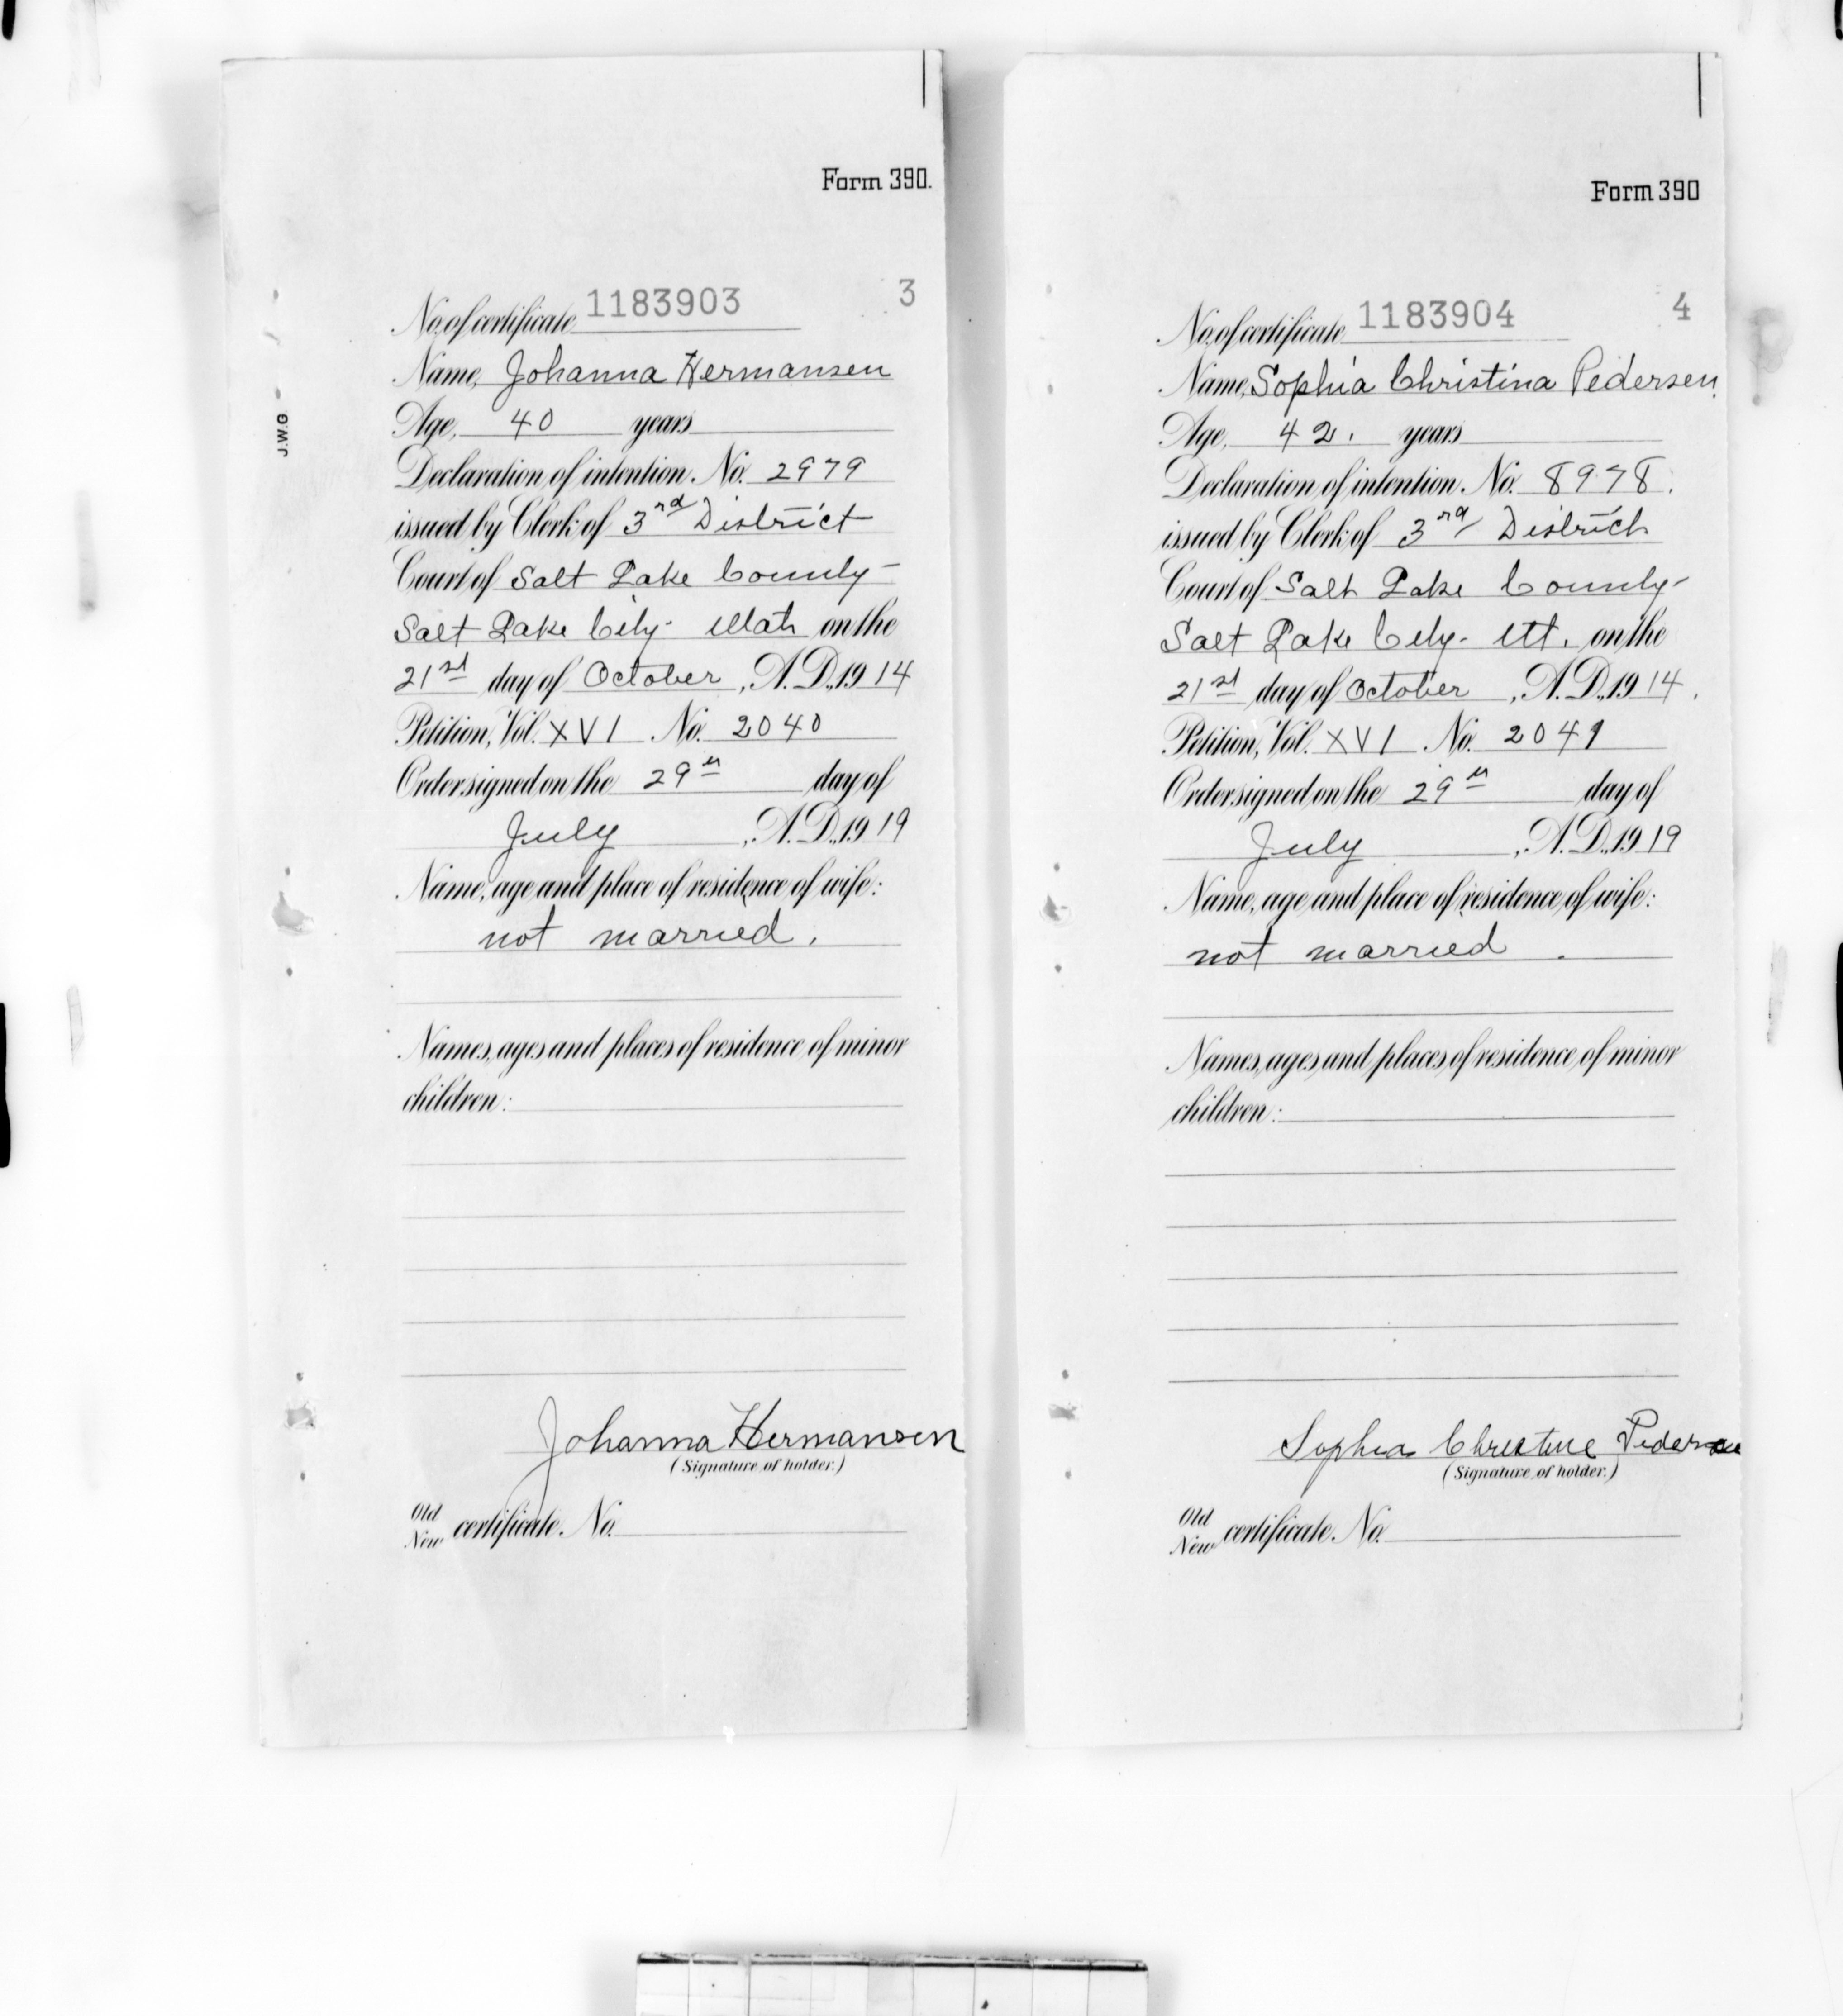 Form 390.
1183903 3
No. of certificate
Name, Johanna Hermansen
Age, 40 years
J.W.G
Declaration of intention. No. 2979
issued by Clerk of 3rd District
Court of Salt Lake County-
Salt Lake City- Utah on the
21st day of October, A. D., 1914
Petition, Vol. XVI No. 2040
Order signed on the 29th day of
July, A. D., 1919
Name, age and place of residence of wife:
not married.
Names, ages and places of residence of minor
children:
Johanna Hermansen
(Signature of holder.)
Old
New certificate. No.
Form 390
1183904 4
No. of certificate
Name, Sophia Christina Pedersen.
Age, 42. years
Declaration of intention. No. 8978.
issued by Clerk of 3rd District
Court of Salt Lake County-
Salt Lake City- Ut. on the
21st day of October, A. D., 1914.
Petition, Vol. XVI No. 2041
Order signed on the 29th day of
July, A. D., 1919
Name, age and place of residence of wife:
not married.
Names, ages and places of residence of minor
children:
Sophia Christine Pedersen
(Signature of holder.)
Old
New certificate. No.